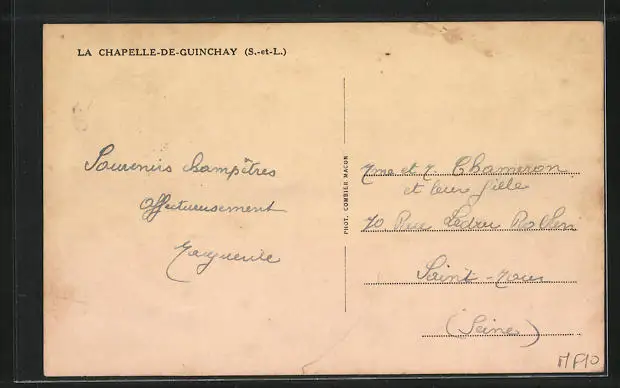 LA CHAPELLE-DE-GUINCHAY (S.-et-L.)
Souvenirs champêtres
affectueusement
PHOT. COMBIER MACON
Mme et M. Chameron
et leur fille
70 Rue Ledru Rollin
Saint-Maur
(Seine)